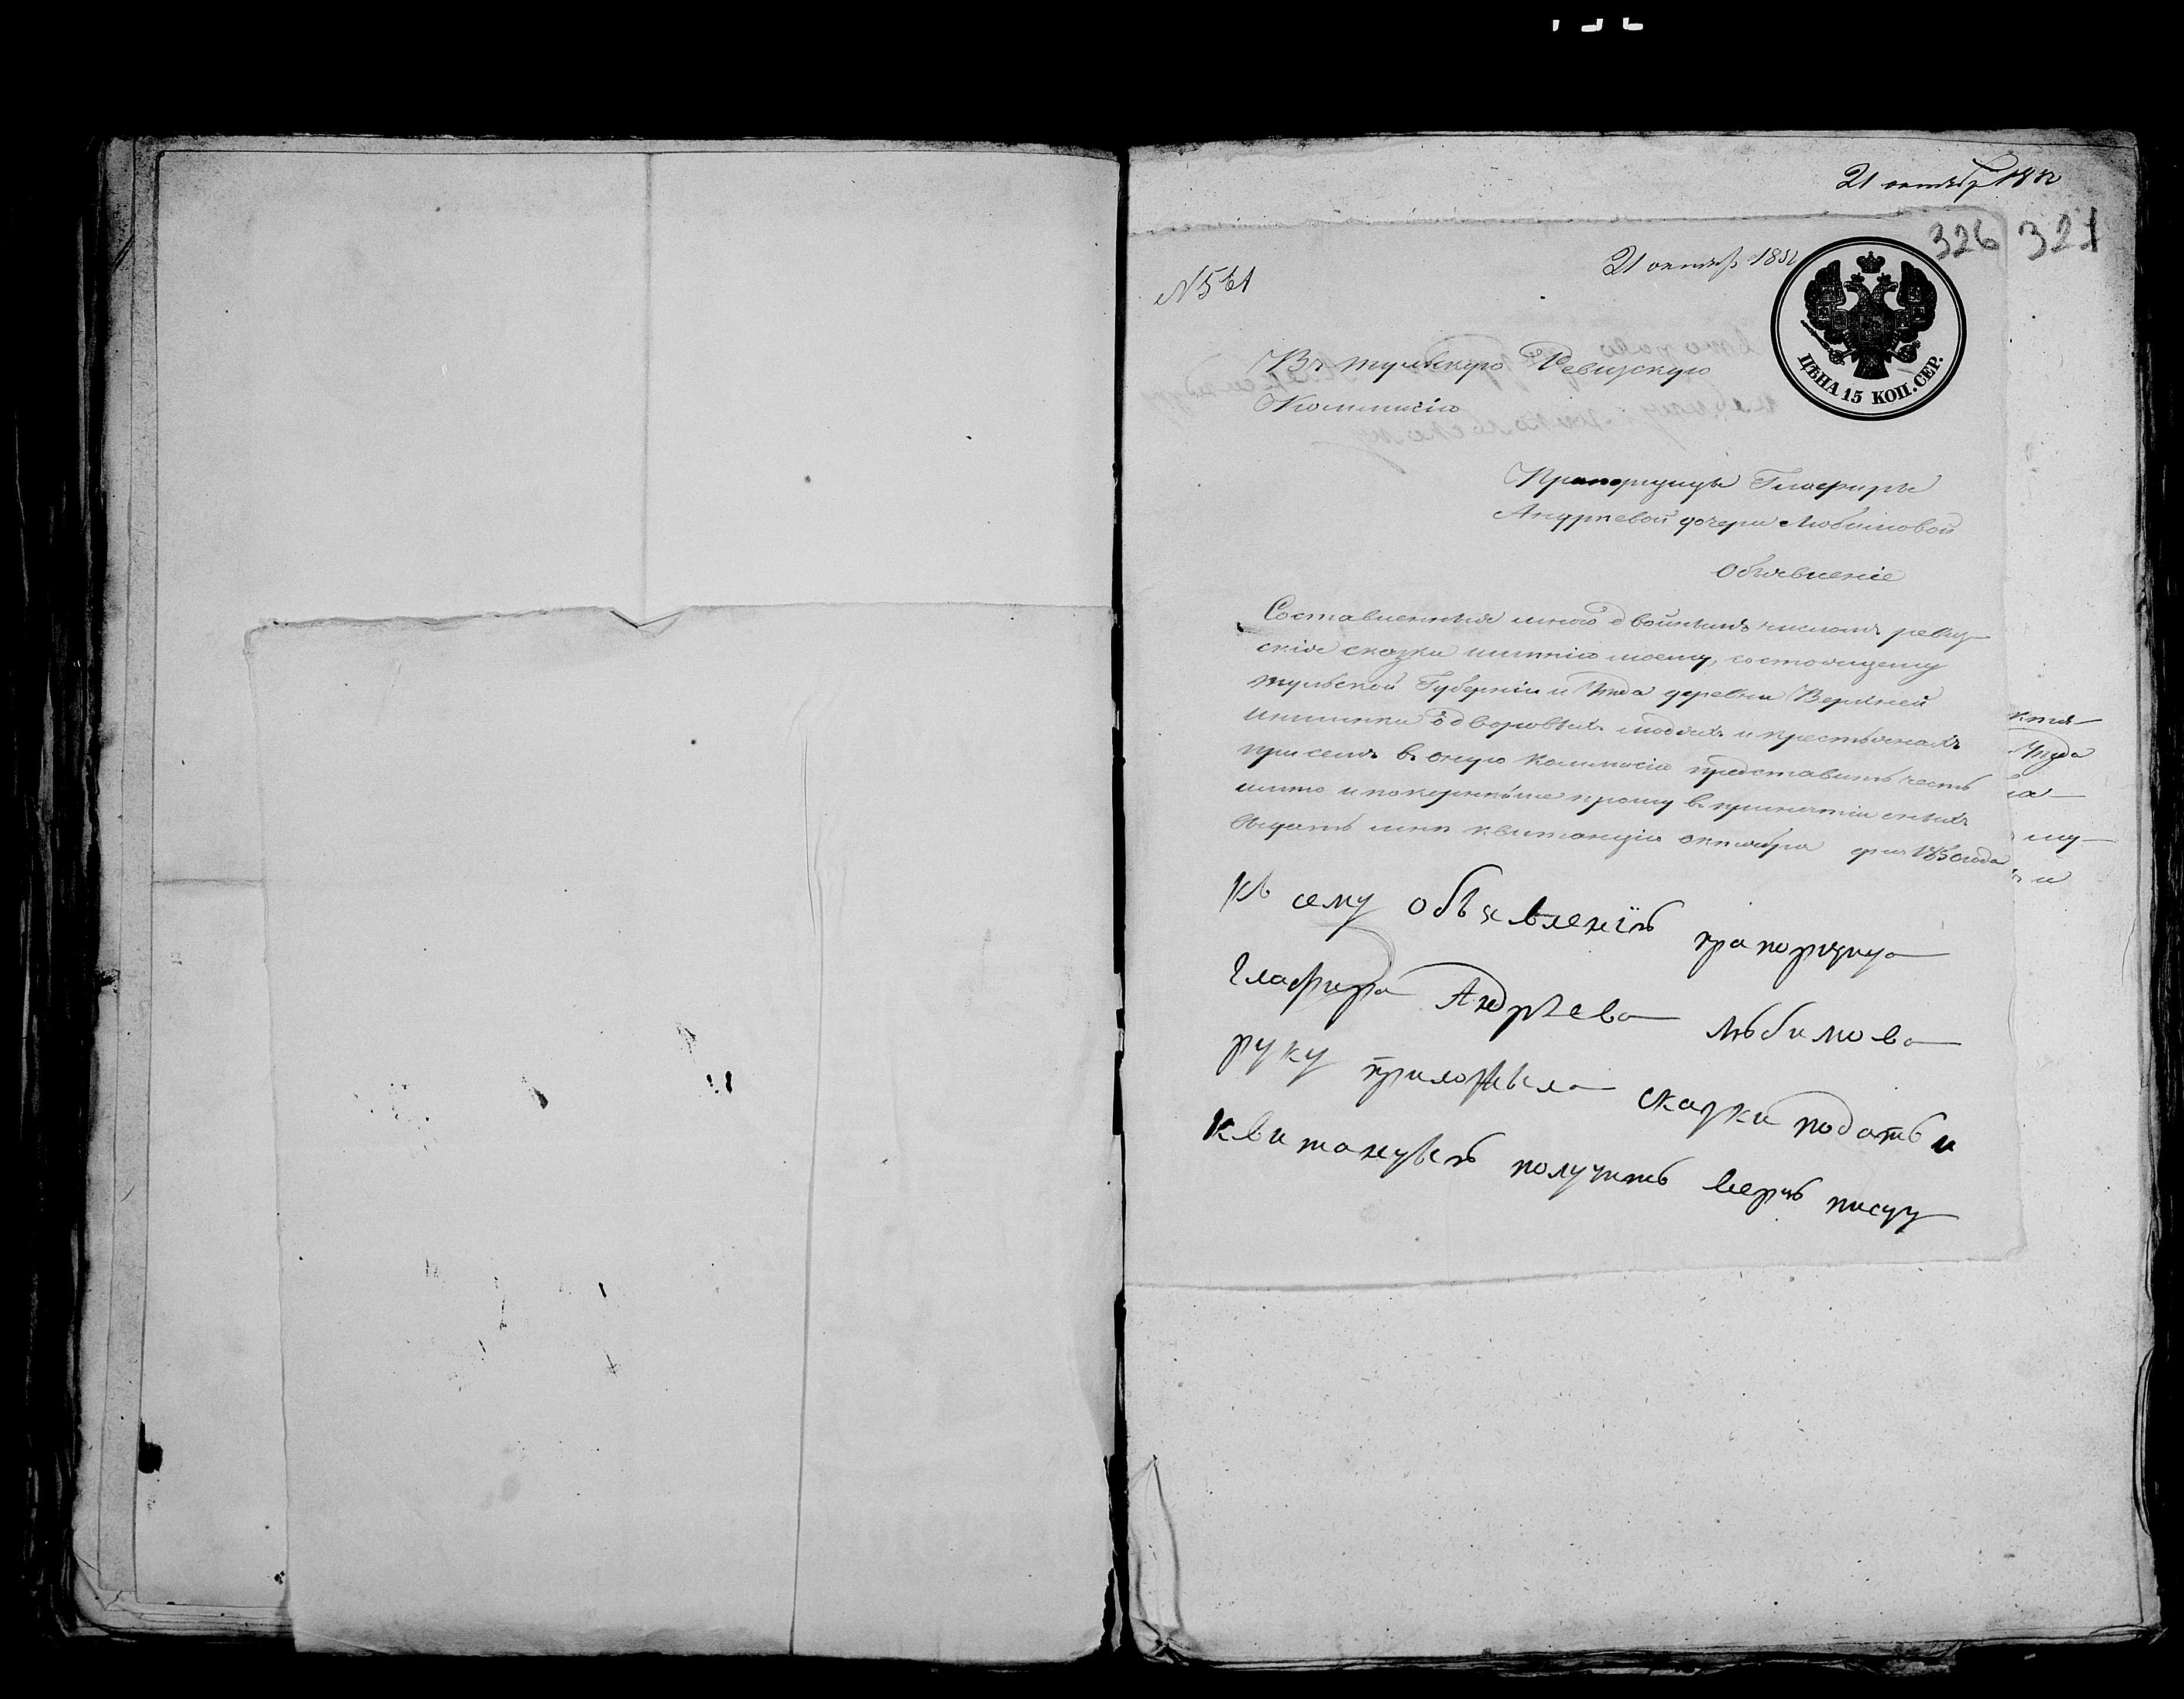 21 октябр 1850
326 321
21 октябр 1850
N 561
ЦѢНА 15 КОП. СЕР.
Въ тульскую Ревизскую
Коммисію
Прапорщицы Глафиры
Андріевой дочери Любимовой
Объявленіе
Составленныя мною двойнымъ числомъ ревиз-
скія сказки имѣнію моему, состоящему
тульской Губерніи и Уезда деревни Верхней
о дворовыхъ людяхъ и крестьянахъ
при семъ въ оную Коммисію представить честь
имѣю и покорнѣйше прошу въ принятіи оныхъ
выдать мнѣ квитанцію октября дня 1850 года
Къ сему объевленію прапорщица
Глафира Андрѣева любимова
руку приложила сказки подать и
квитанцыю получить верю писцу
Уезда
му-
и